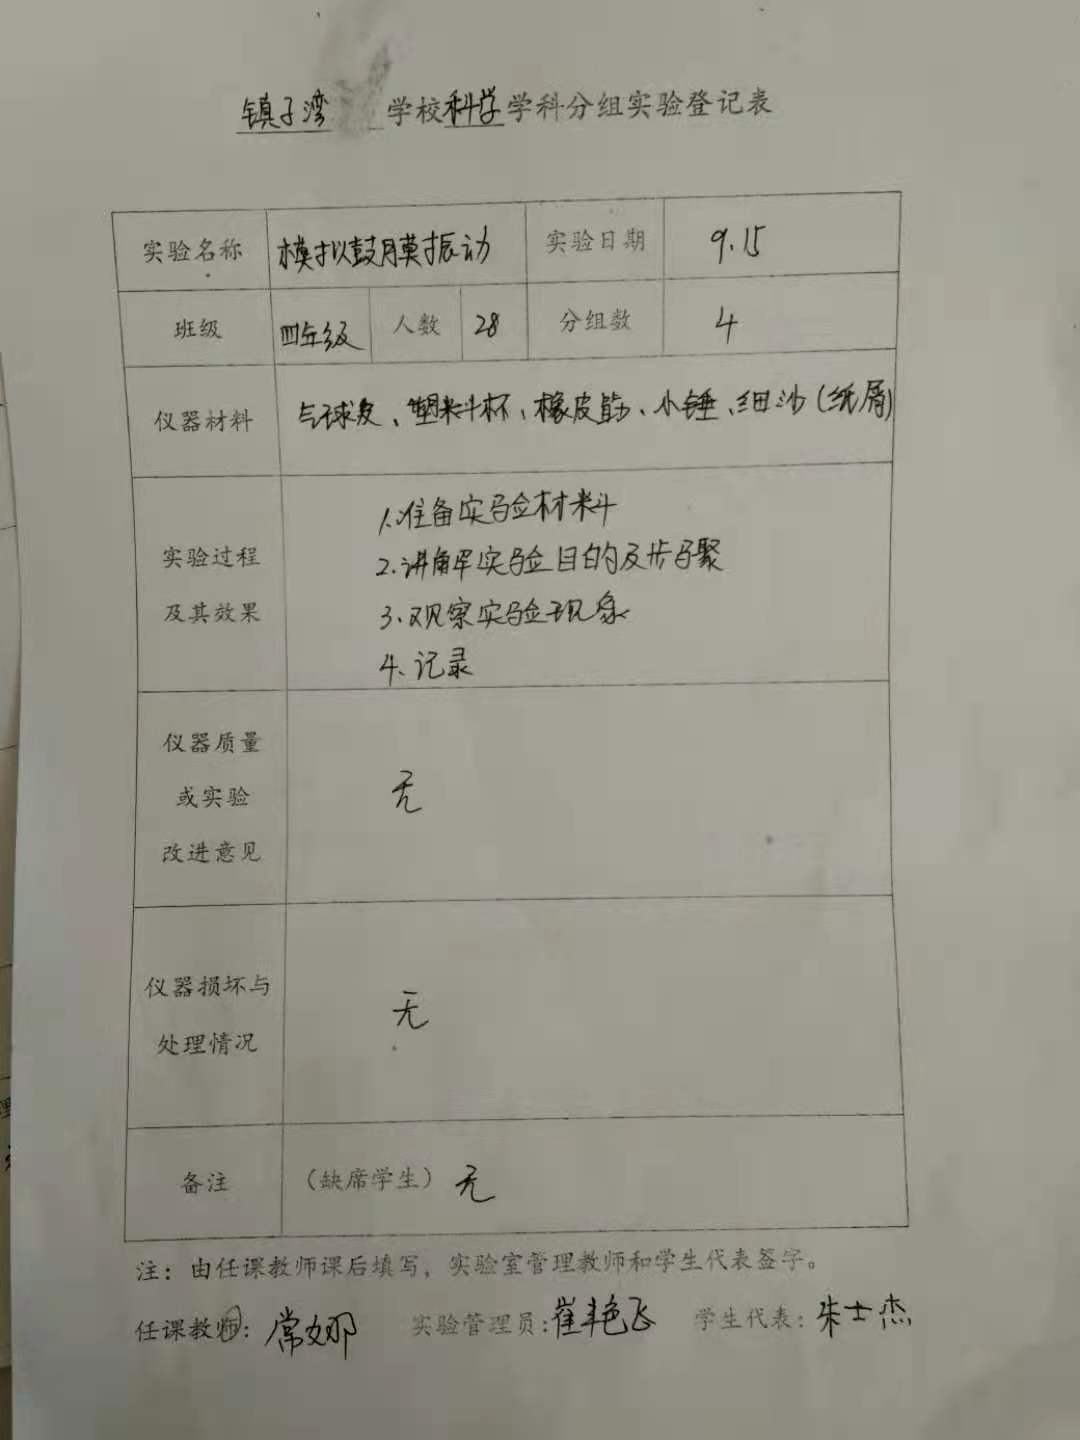 镇子湾 学校科学学科分组实验登记表
实验名称 模拟鼓膜振动 实验日期 9.15
班级 四年级 人数 28 分组数 4
仪器材料 气球皮、塑料杯、橡皮筋、小锤、细沙(纸屑)
实验过程
及其效果
1.准备实验材料
2.讲解实验目的及步骤
3.观察实验现象
4.记录
仪器质量
或实验
改进意见
无
仪器损坏与
处理情况
无
备注 （缺席学生） 无
注：由任课教师课后填写，实验室管理教师和学生代表签字。
任课教师：常娜 实验管理员：崔艳飞 学生代表：朱士杰